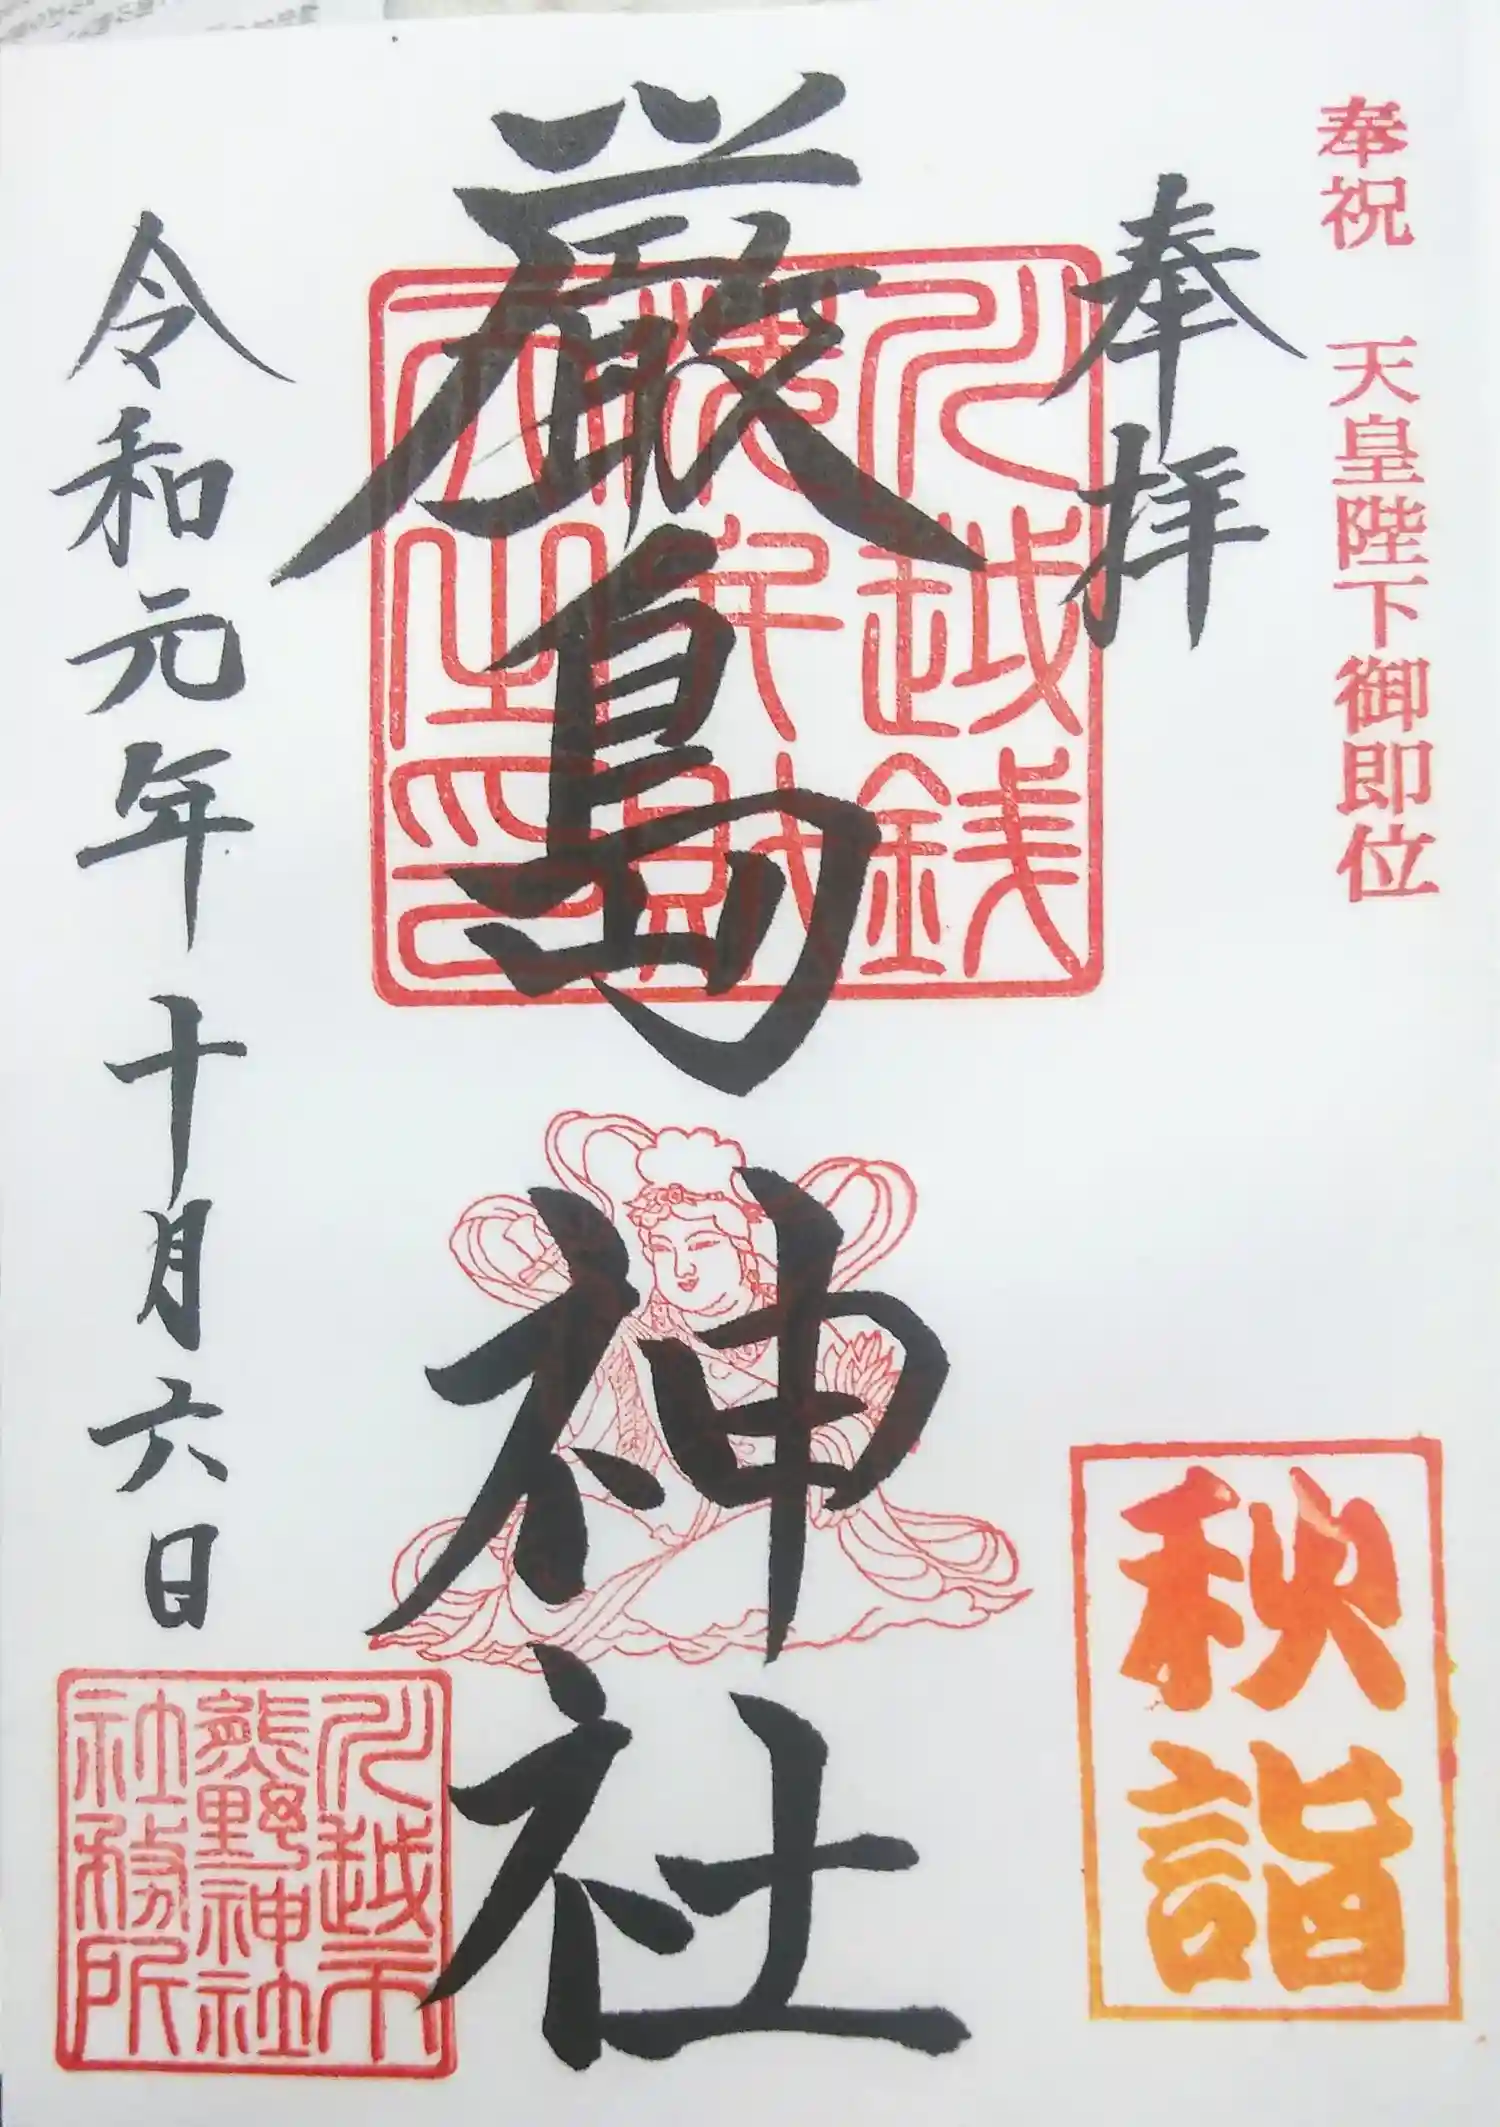 奉祝 天皇陛下御即位
奉拝
厳島神社
川越銭
洗弁財
天之印
令和元年十月六日
秋詣
川越市
熊野神社
社務所